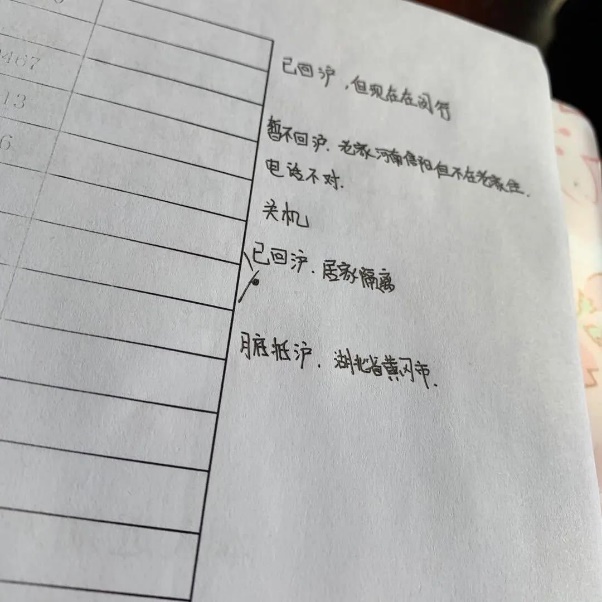 467
13
6
已回沪，但现在在闵行
暂不回沪．老家河南信阳但不在老家住．
电话不对．
关机
已回沪．居家隔离
月底抵沪．湖北省黄冈市．